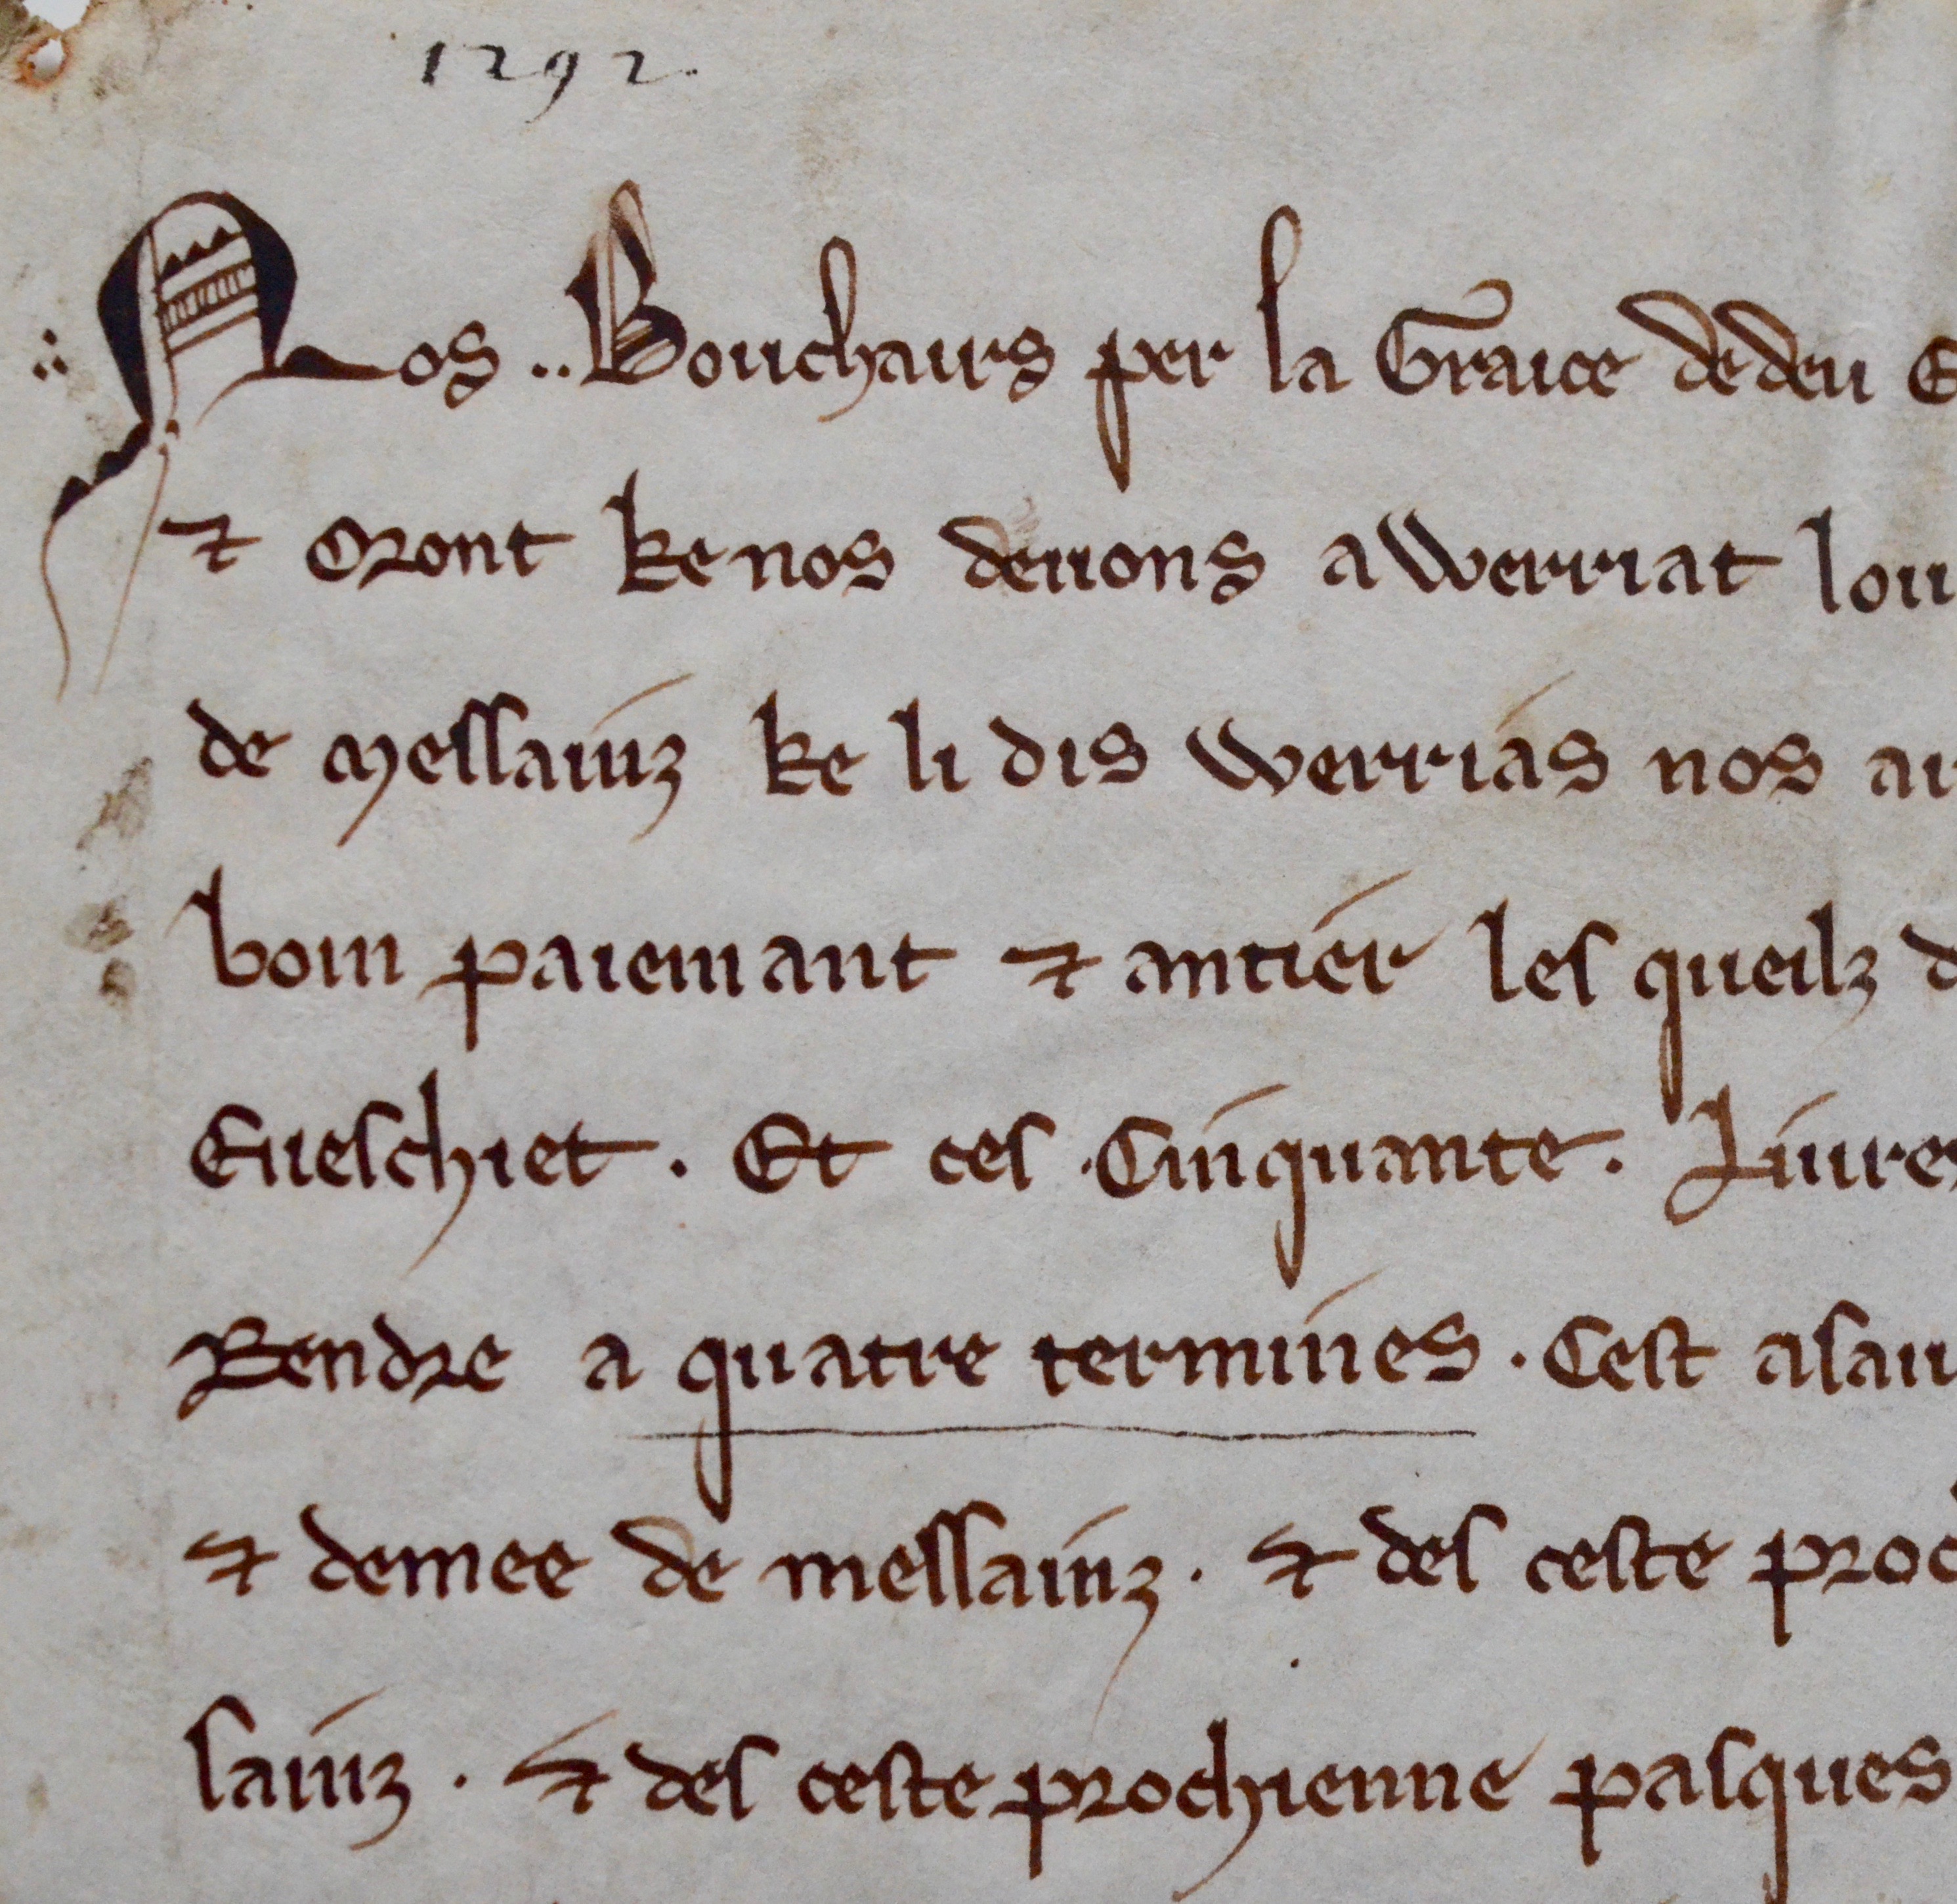 1292.
Nos .. Bouchairs per la Graice de deu E
⁊ oront ke nos deuons a Werriat lou
de Messainz ke li dis Werrias nos ai
boin paiemant ⁊ antier les queilz d
Eueschiet . Et ces . Cinquante . Liures
Rendre a quatre termines . Cest a sau
⁊ demee de messainz . ⁊ des ceste proc
sainz . ⁊ des ceste prochienne pasques